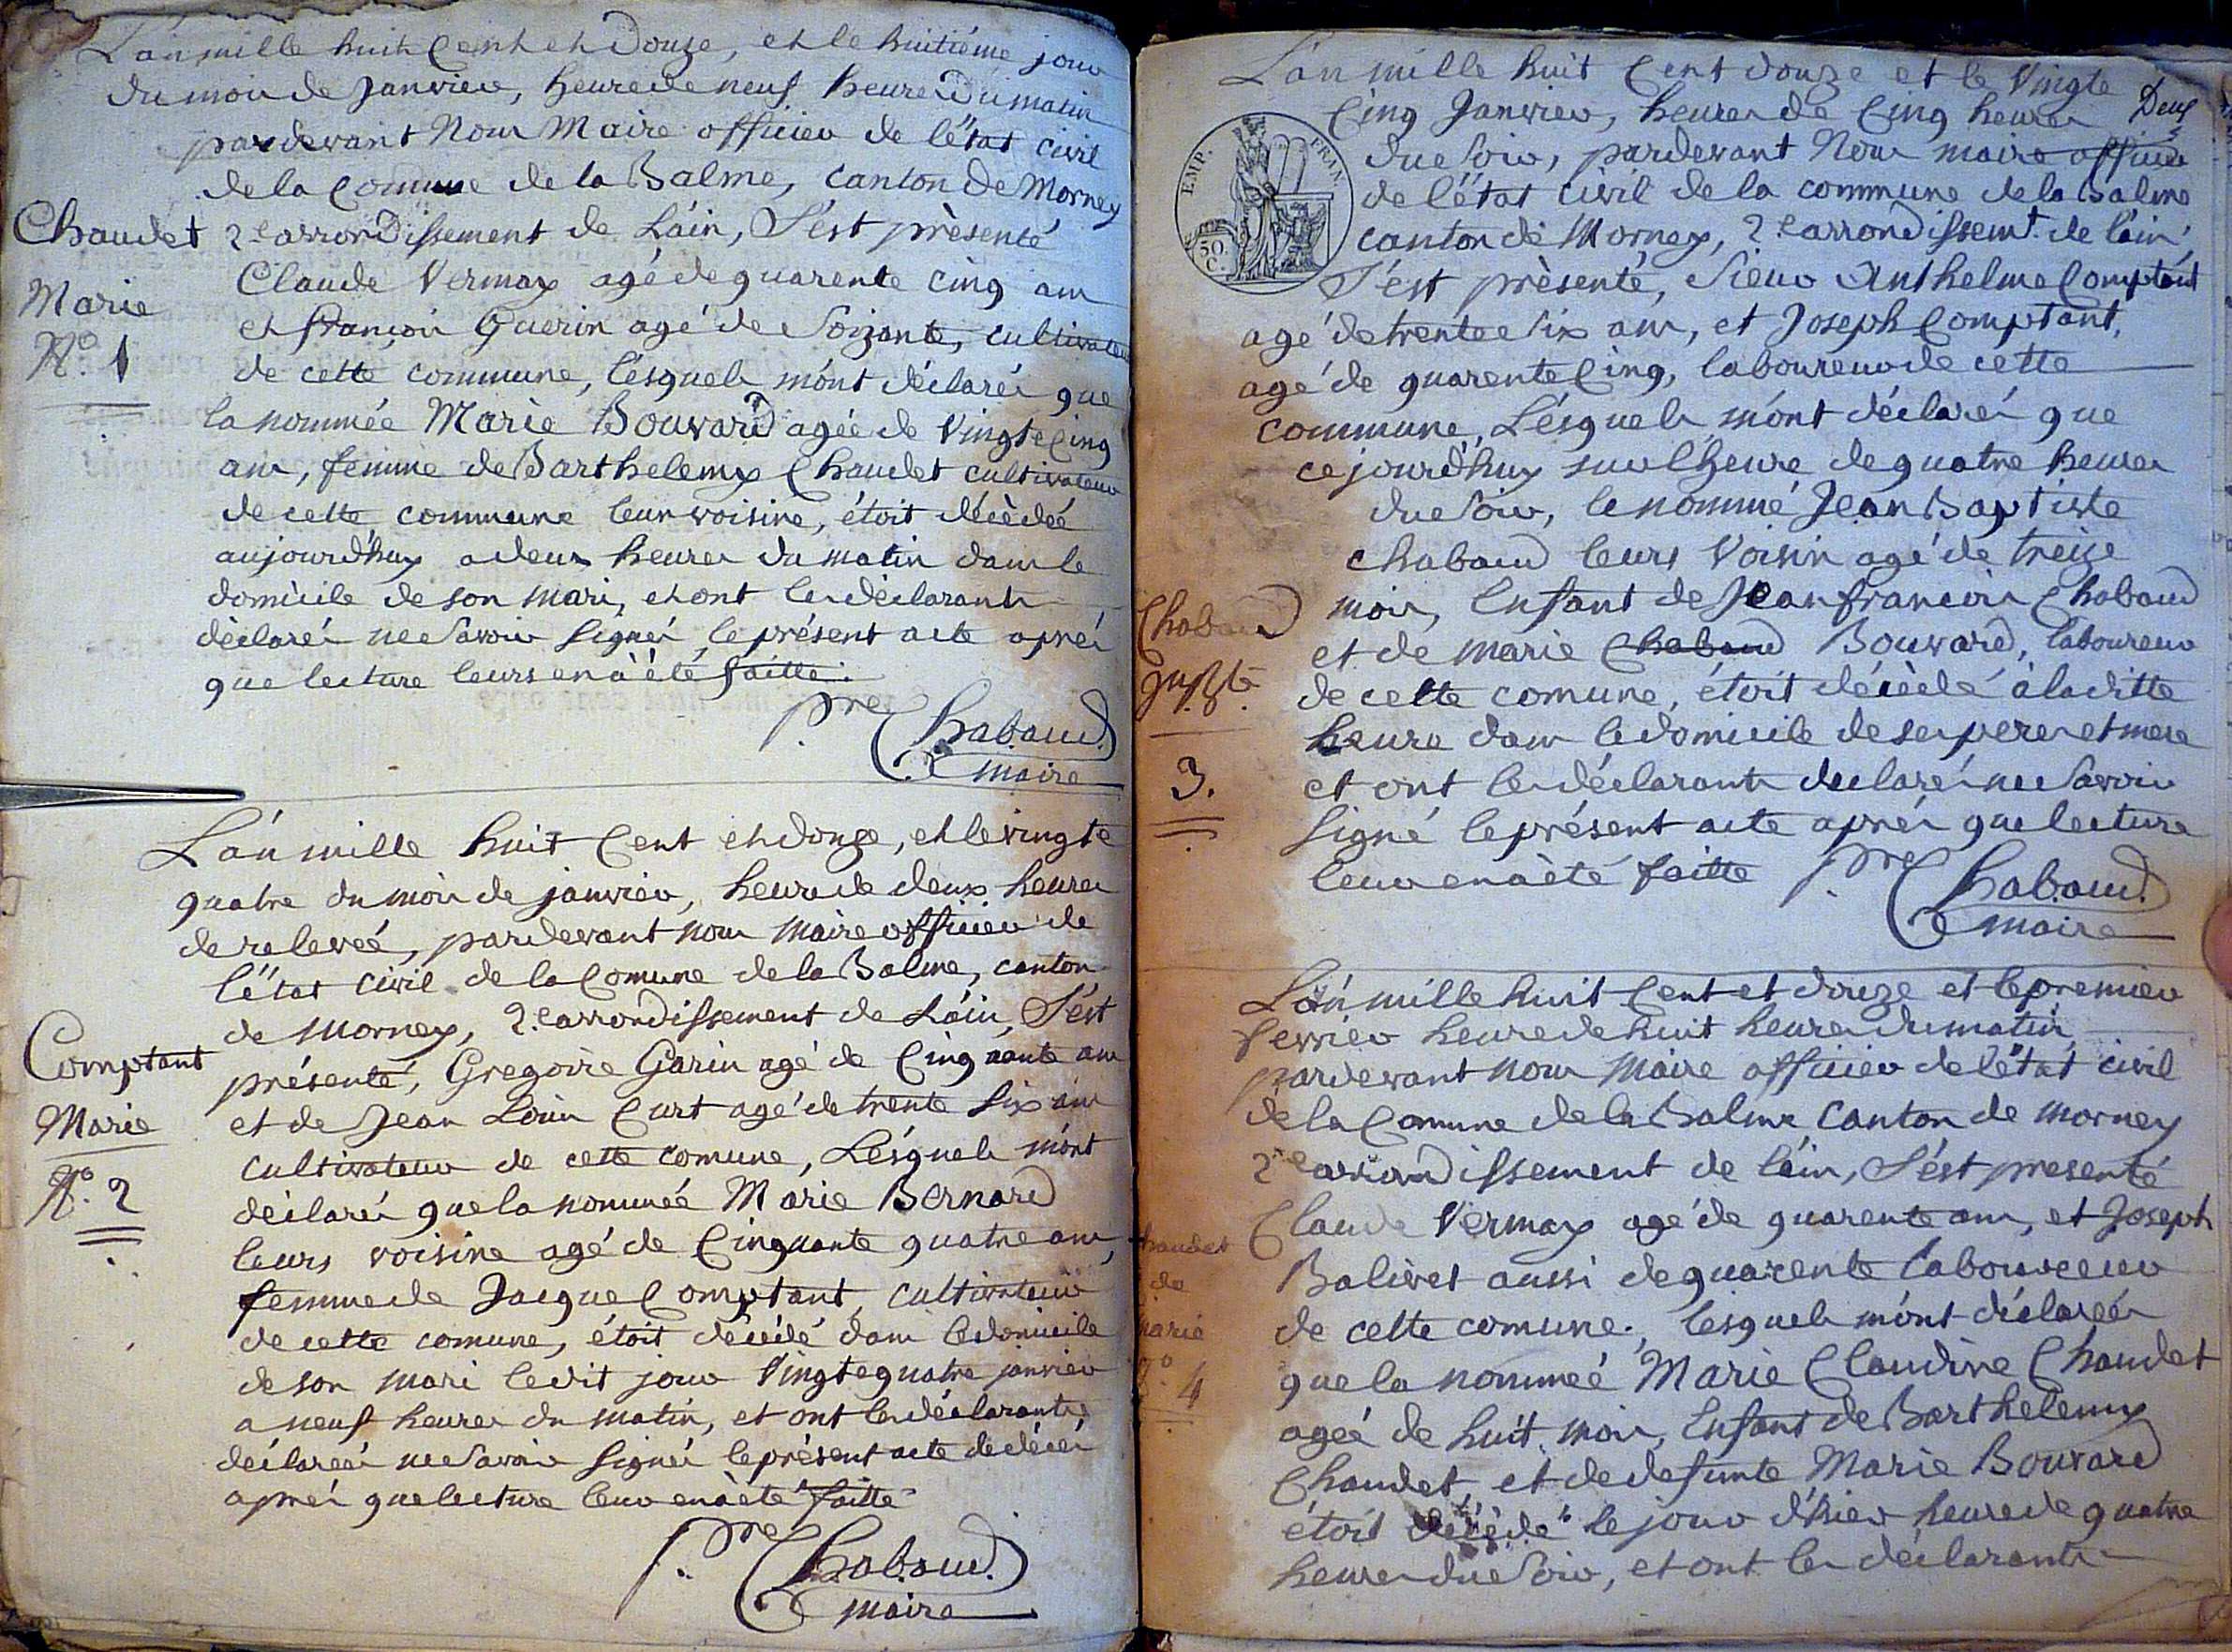 L'an mille huit Cent et Douze, et le huitiéme jour
du moi de Janvier, heure de neuf heures Du matin
pardevant Nous Maire officier de l'état civil
de la Commune de la Balme, Canton De Mornay
2.e arrondissement de L'ain, S'est présenté
Claude Vermay agé de quarente cinq ans
et françois Guerin agé de Soizante, cultivateur
de cette commune, lésquels m'ont déclarés que
la nommée Marie Bouvard agée de Vingte Cinq
ans, femme de Barthelemy Chaudet cultivateur
de cette commune leur voisine, étoit décédeé
aujourd'huy a deux heures du matin dans le
domicile de son mari, et ont les déclarants
déclarés ne Savoir Signér le présent acte aprés
que lecture leurs en à été faitte.
P.re Chabaud
maire
Chaudet
Marie
N.o 1
L'an mille huit Cent et douze, et le vingte
quatre du moi de janvier, heure de deux heures
de releveé, pardevant nous maire officier de
l'état civil de la Comune de la Balme, canton
de Mornay, 2.e arrondissement de L'ain, S'est
présenté, Gregoire Garin agé de Cinquante ans
et de Jean Louis Curt agé de trente Six ans
cultivateur de cette comune, Lésquels m'ont
déclarés que la nommeé Marie Bernard
leurs voisine agé de Cinquante quatre ans,
femme de Jacque Comptant, cultivateur
de cette comune, étoit décédé dans le domicile
de son mari le dit jour Vingte quatre janvier
a neuf heures du matin, et ont les déclarants
déclareés ne Savoir Signér le présent acte de décés
aprés que lecture leur en à été faitte
P.re Chabaud.
maire
Comptant
Marie
N.o 2
Deux
L'an mille huit Cent douze et le Vingte
Cinq Janvier, heures de Cinq heures
due Soir, pardevant Nous maire officier
de l'état civil de la commune de la Balme
canton de Mornay, 2.e arrondissem.t de l'ain,
S'est présenté, Sieur Anthelme Comptant
agé de trente Six ans, et Joseph Comptant,
agé de quarente Cinq, laboureur de cette
commune, Lésquels m'ont déclarés que
ce jourd'huy sur l'heure de quatre heures
due Soir, le nommé Jean Baptiste
Chabaud leurs Voisin agé de treize
mois, Enfant de Jean françois Chabaud
et de marie Chabaud Bouvard, laboureur
de cette comune, étoit décédé à la ditte
heure dans le domicile de ses pere et mere
et ont les déclarants declarés ne Savoir
Signé le présent acte aprés que lecture
leur en à été faitte P.re Chabaud.
maire
EMP. FRAN.
50.
C.
Chabaud
3.
L'an mille huit Cent et douze et le premier
Fevrier heure de huit heures du matin
pardevant nous Maire officier de l'état civil
de la Comune de la Balme Canton de Mornay
2.e arrondissement de l'ain, S'est presenté
Claude Vermay agé de quarente ans, et Joseph
Balivet aussi de quarente laboureur
de cette comune, lésquels m'ont déclareés
que la nommeé Marie Claudine Chaudet
agée de huit mois, Enfant de Barthelemy
Chaudet, et de defunte Marie Bouvard
étoit décédé le jour d'hier heure de quatre
heures due Soir, et ont les déclarants
haudet
de
marie
N.o 4